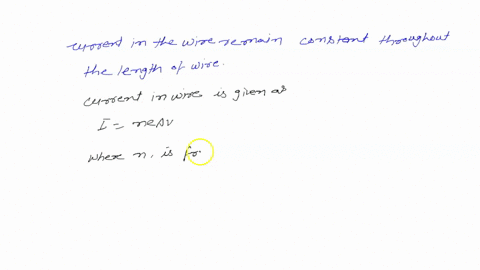 current in the wire remain constant throughout
the length of wire.
current in wire is given as
I = neAv
where n, is fr